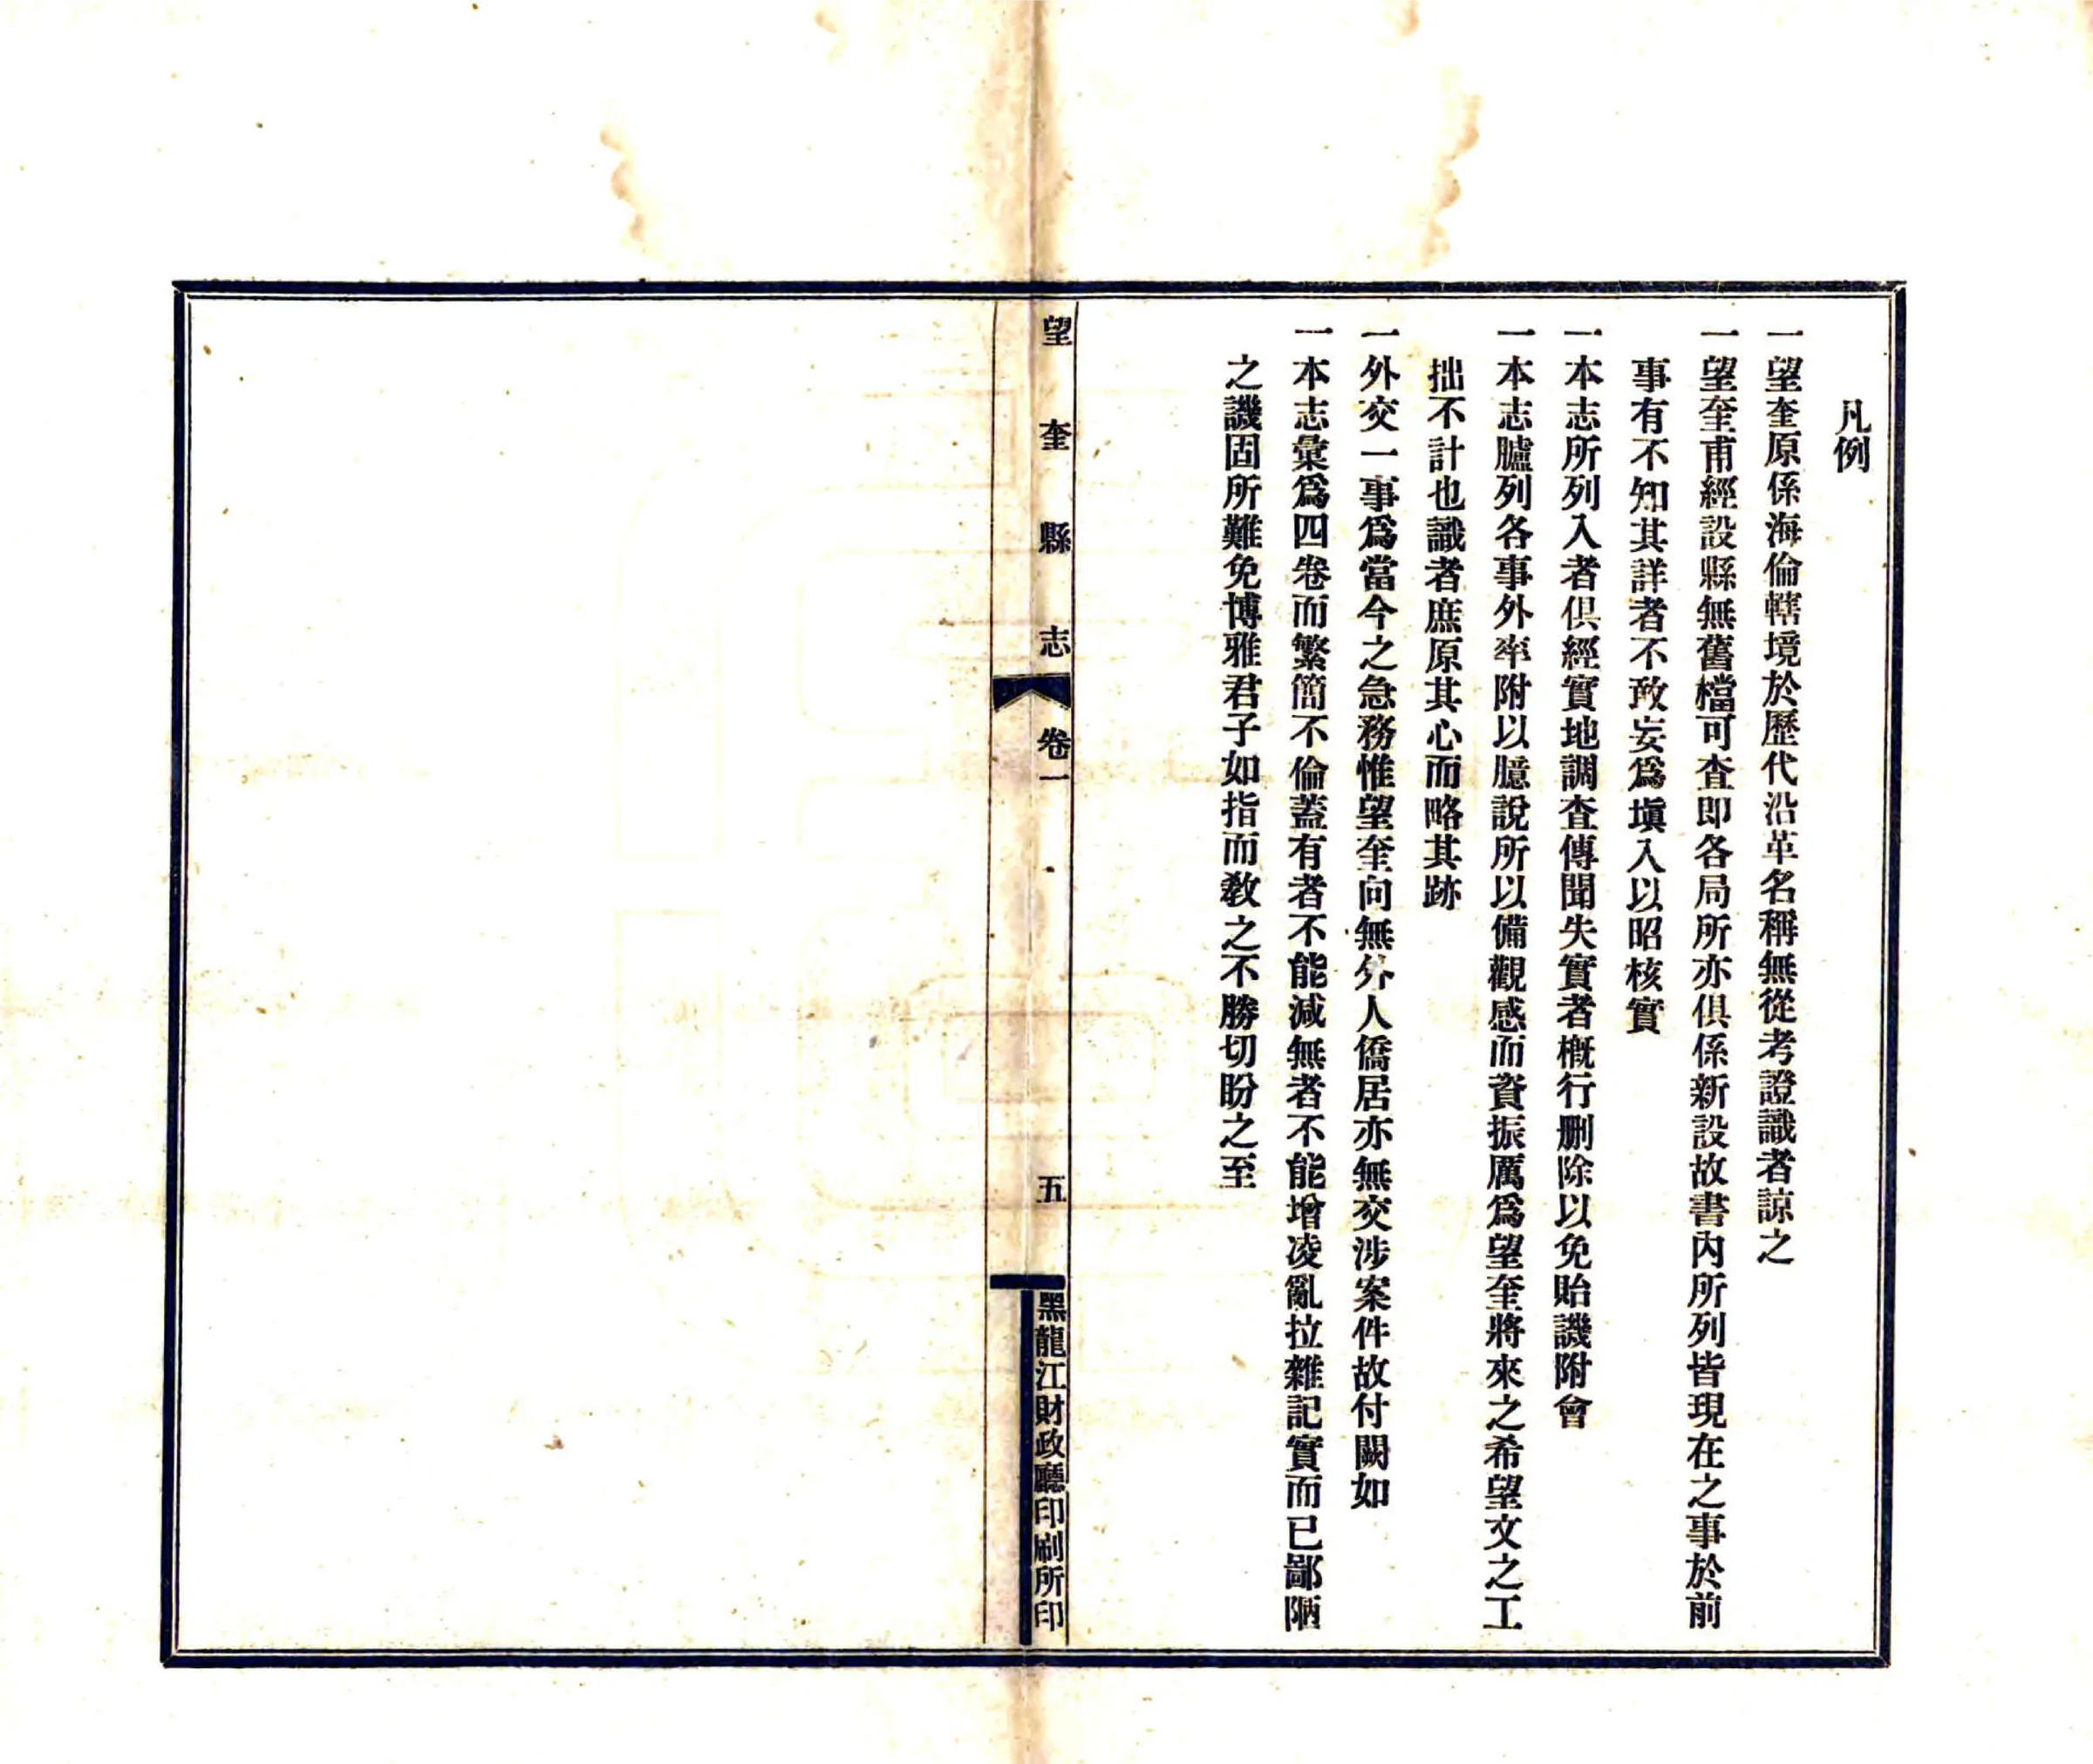 凡例
一望奎原係海倫轄境於歷代沿革名稱無從考證識者諒之
一望奎甫經設縣無舊檔可查即各局所亦俱係新設故書內所列皆現在之事於前
事有不知其詳者不敢妄爲塡入以昭核實
一本志所列入者俱經實地調查傳聞失實者槪行删除以免貽譏附會
一本志臚列各事外率附以臆說所以備觀感而資振厲爲望奎將來之希望文之工
拙不計也識者庶原其心而略其跡
一外交一事爲當今之急務惟望奎向無外人僑居亦無交涉案件故付闕如
一本志彙爲四卷而繁簡不倫蓋有者不能減無者不能增凌亂拉雜記實而已鄙陋
之譏固所難免博雅君子如指而敎之不勝切盼之至
望奎縣志 卷一 五 黑龍江財政廳印刷所印